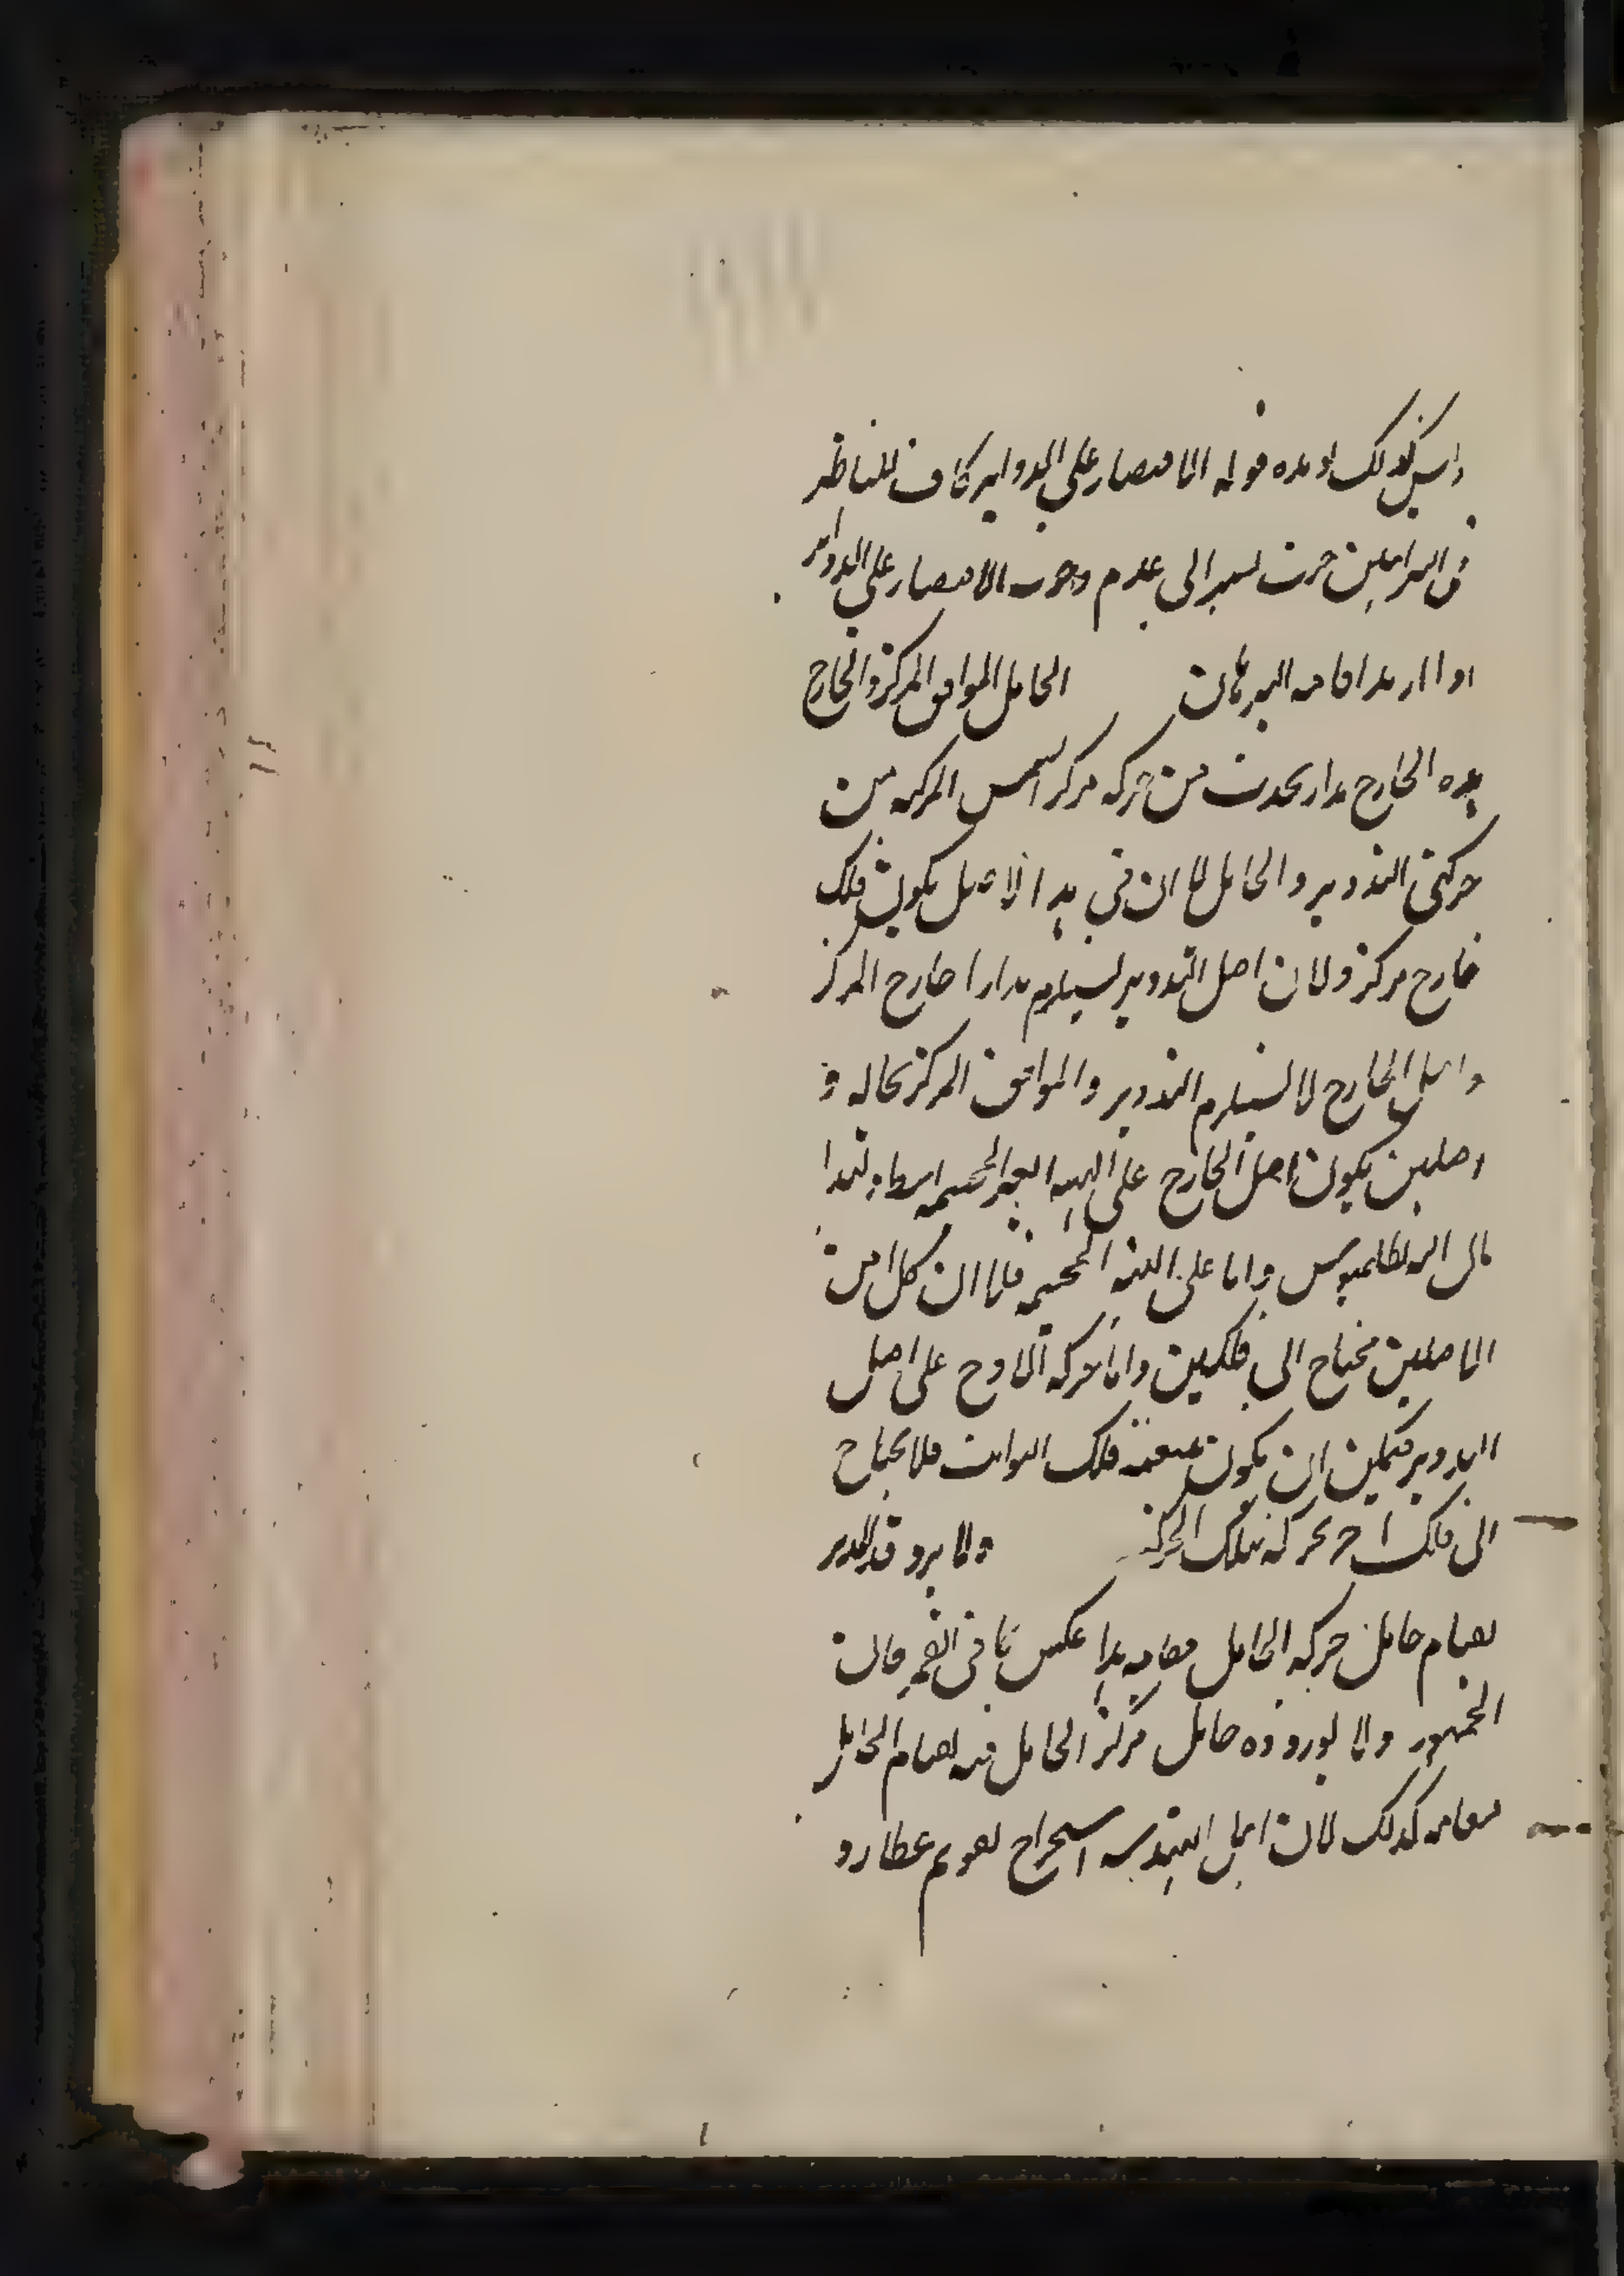 وليس كذلك لو مده قوله الاقتصار على الدواير كاف للناظر
فى البراهين حيث يشير الى عدم وجوب الاقتصار على الدواير
اذا اريد اقامه البرهان الحامل الموافق المركز والخارج
هذه الخارج مدار يحدث من حركه مركز الشمس المركبه من
حركتى التدوير والحامل لا ان فى هذا الاصل يكون فلك
خارج مركز ولان اصل التدوير يستلزم مدارا خارج المركز
واصل الخارج لا يستلزم التدوير والموافق المركز بحاله و
اصلين يكون اصل الخارج على الهيه الغير المجسمه ابسط ولهذا
مال اليه بطلميوس واما على الهيه المجسمه فلما ان كل من
الاصلين محتاج الى فلكين واما حركه الاوج على اصل
التدوير فيمكن ان يكون فلك الثوابت فلا يحتاج
الى فلك اخر يحركه بتلك الحركه ولا يرو
حامل حركه الحامل مقامه هذا عكس ما فى القمر فان
الجمهور ولا يوردوه حامل مركز الحامل فيه لقيام الحامل
مقامه كذلك لان اهل الهند استخراج تقويم عطارد